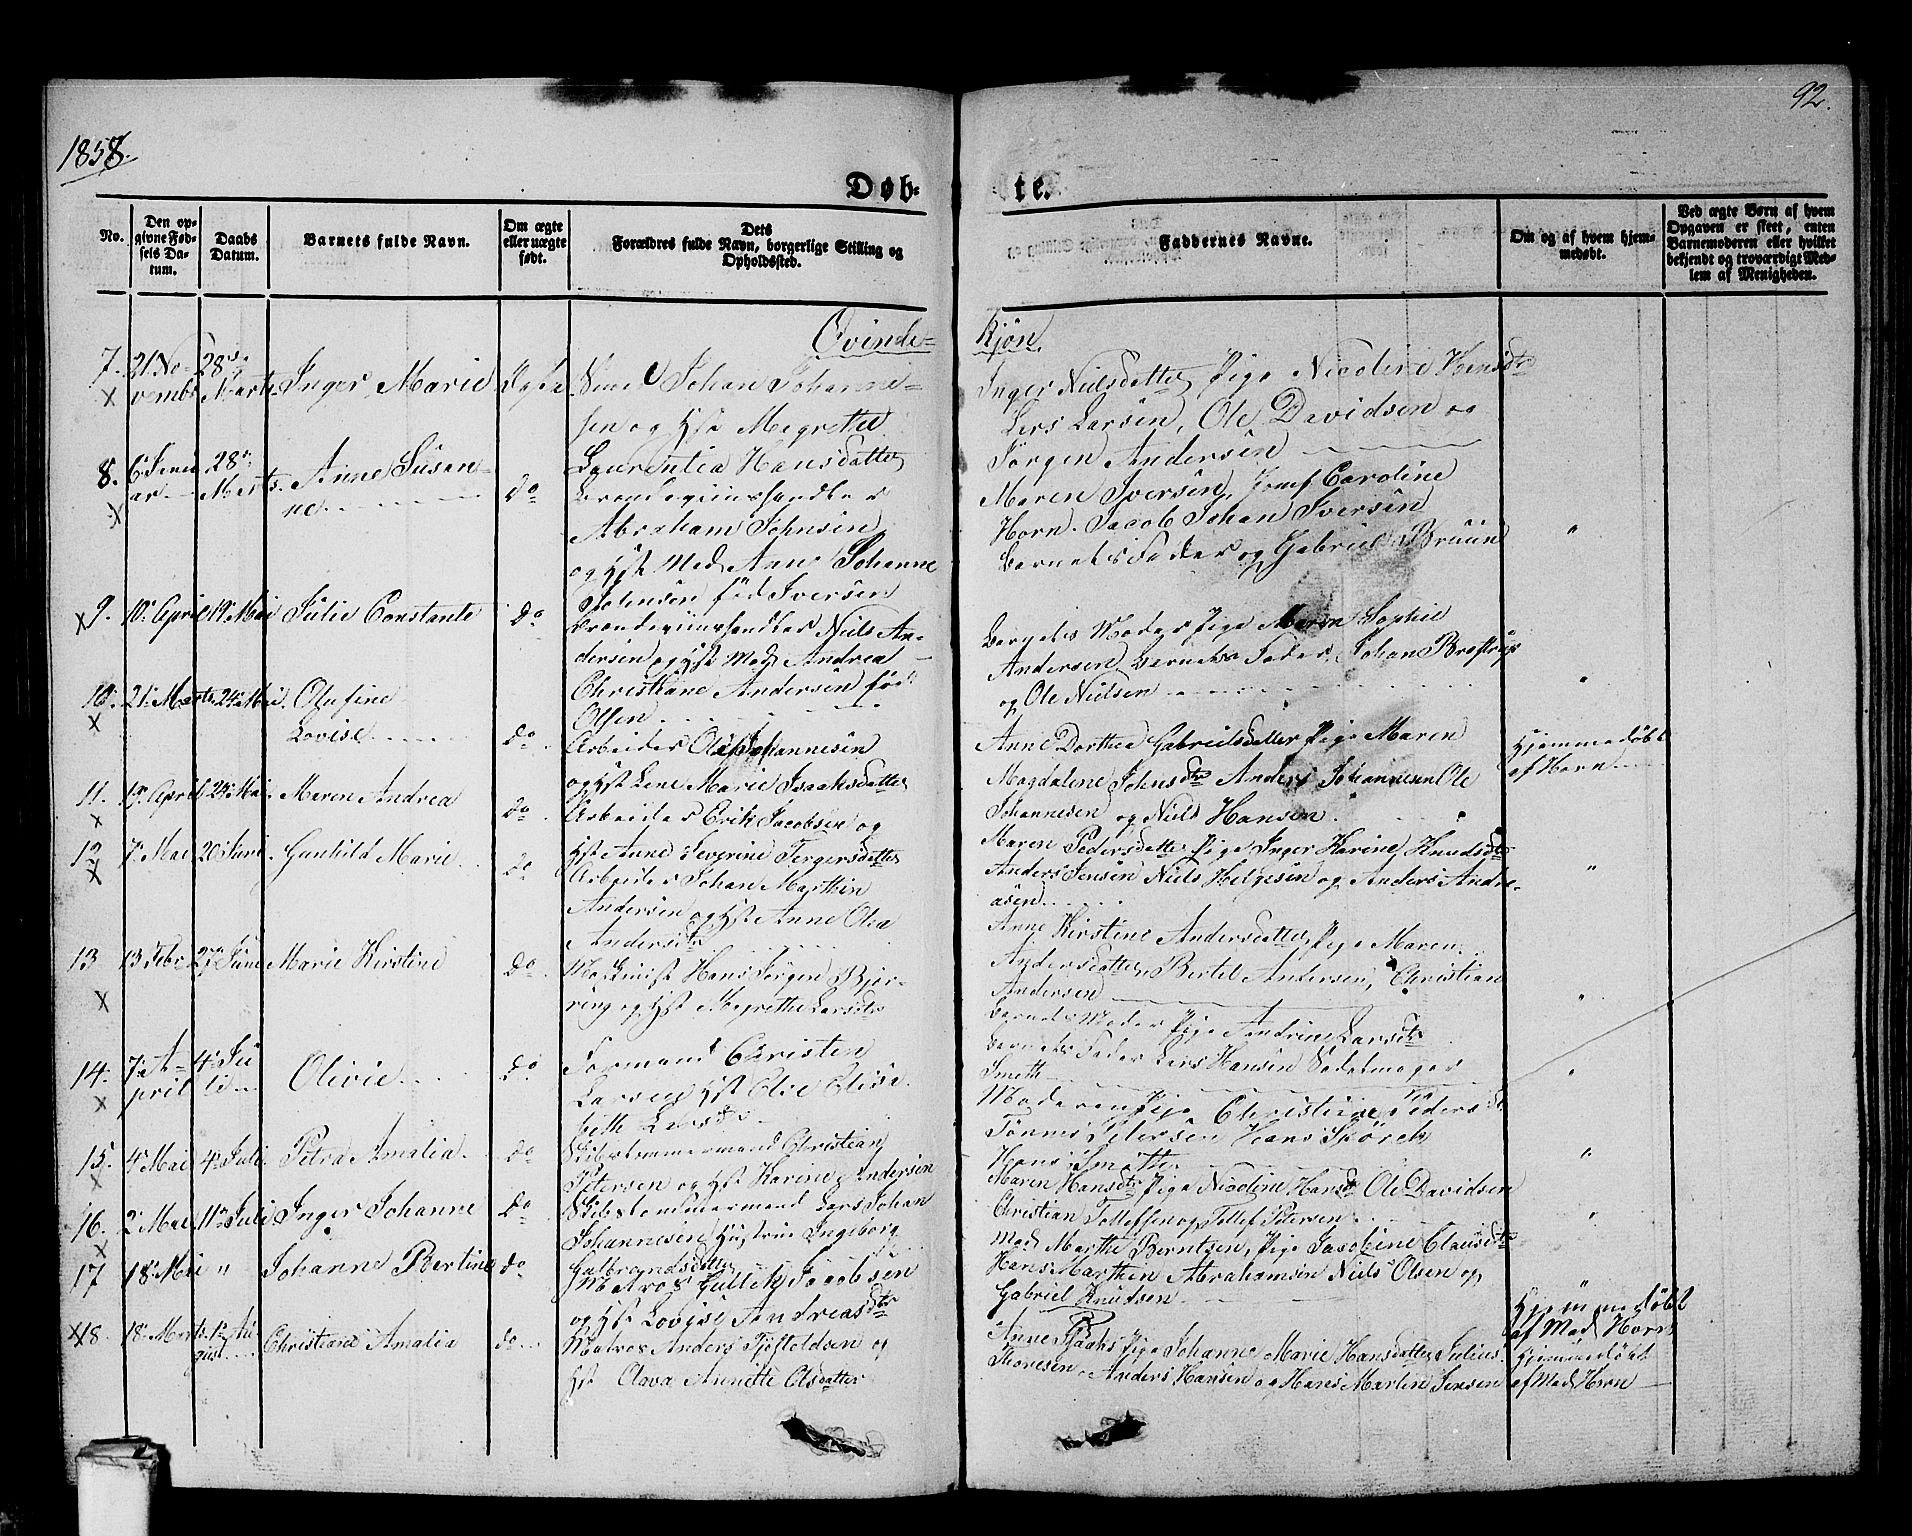 92.
1858.
Døb-
te.
No.
Den op-
givne Fød-
sels Da-
tum.
Daabs
Datum.
Barnets fulde Navn.
Om ægte
eller uægte
født.
Dets
Forældres fulde Navn, borgerlige Stilling og
Opholdssted.
Faddernes Navne.
Om og af hvem hjem-
medøbt.
Ved ægte Børn af hvem
Opgaven er skeet, enten
Barnemoderen eller hvilket
bekjendt og troværdigt Med-
lem af Menigheden.
Qvinde-
Kjøn
7. 21 No-
vembr
28de
Marts
Inger Marie
Ægte
Johan Johanne-
sen og Hst Megrethe
Laurentia Hansdatter
Inger Nielsdatter, Pige Nicoline Hansdtr
Lars Larsen, Ole Davidsen og
Jørgen Andersen
8. 6 Janu
ar
28de
Marts
Anne Susan-
ne
do
Brændeviinshandler
Abraham Johnsen
og Hst Mad. Anne Johanne
Johnsen fød Iversen
Maren Iversen, Jomf Caroline
Horn. Jacob Johan Iversen
Barnets Fader og Gabriel Bruun
"
9. 10 April 19 Mai Julie Constante do
Brændeviinshandler Niels An-
dersen og Hst Mad. Andrea
Christiane Andersen fød
Olsen
Barnets Moder, Pige Maren Sophie
Andersen, Barnets Fader, Johan Brostrup
og Ole Nielsen
"
10. 21 Marts 24 Mai Olufine
Lovise do
Arbeider Ole Johannesen
og Hst Lene Marie Isaaksdatter
Anne Dorthea Gabrielsdatter, Pige Maren
Magdalene Johnsdtr Anders Johannesen Ole
Johannesen og Niels Hansen
Hjemmedøbt
af Horn
11. 15 April 24 Mai Maren Andrea do
Arbeider Erik Jacobsen og
Hst Anne Severine Tergersdatter
Maren Pedersdatter, Pige Inger Karine Knudsdtr
Anders Jensen Niels Helgesen og Anders Andre-
asen
"
12 7 Mai 20 Juni Gunhild Marie do
Arbeider Johan Marthin
Andersen og Hst Anne Olea
Andersdtr
Anne Kirstine Andersdatter, Pige Maren
Andersdatter, Bertel Andersen, Christian
Andersen
"
13 13 Febr 27 Juni Marie Kirstine do
Maskinist Hans Jørgen Bjer-
ring og Hst Megrethe Larsdtr
Barnets Moder, Pige Andrine Larsdtr
Barnets Fader Lars Hansen Sadelmager
Smith
"
14. 7 A-
pril
4 Ju
li
Olivie do
Formand Christen
Larsen Hst Elie Elisa
beth Larsdtr
Moderen, Pige Christine Peders dtr
Tønnes Petersen Hans Størch
Hans Smith
"
15. 4 Mai 4 Juli Petra Amalia do
Skibstømmermand Christian
Petersen og Hst Karine Andersen
Maren Hansdtr, Pige Nicoline Hansdtr Ole Davidsen
Christian Tollefsen og Tollef Petersen
"
16. 2 Mai 11 Juli Inger Johanne do
Skibstømmermand Lars Johan
Johannesen Hustrue Ingeborg
Gulbrandsdatter
Mad Marthe Berntsen, Pige Jacobine Clausdtr
Hans Marthin Abrahamsen Niels Olsen og
Gabriel Knudsen
"
17 18 Mai " Johanne Bertine do
Matros Gullik Jacobsen
og Hst Lovise Andreasdtr
Hjemmedøbt
af Mad Horn
18. 18 Marts 1 Au
gust
Christiane Amalia do
Matros Anders Tjøstoldsen og
Hst Olava Annette Olsdatter
Anne Isaaks Pige Johanne Marie Hansdatter Julius
Thoresen Anders Hansen og Hans Martin Jensen
Hjemmedøbt
af Mad Horn